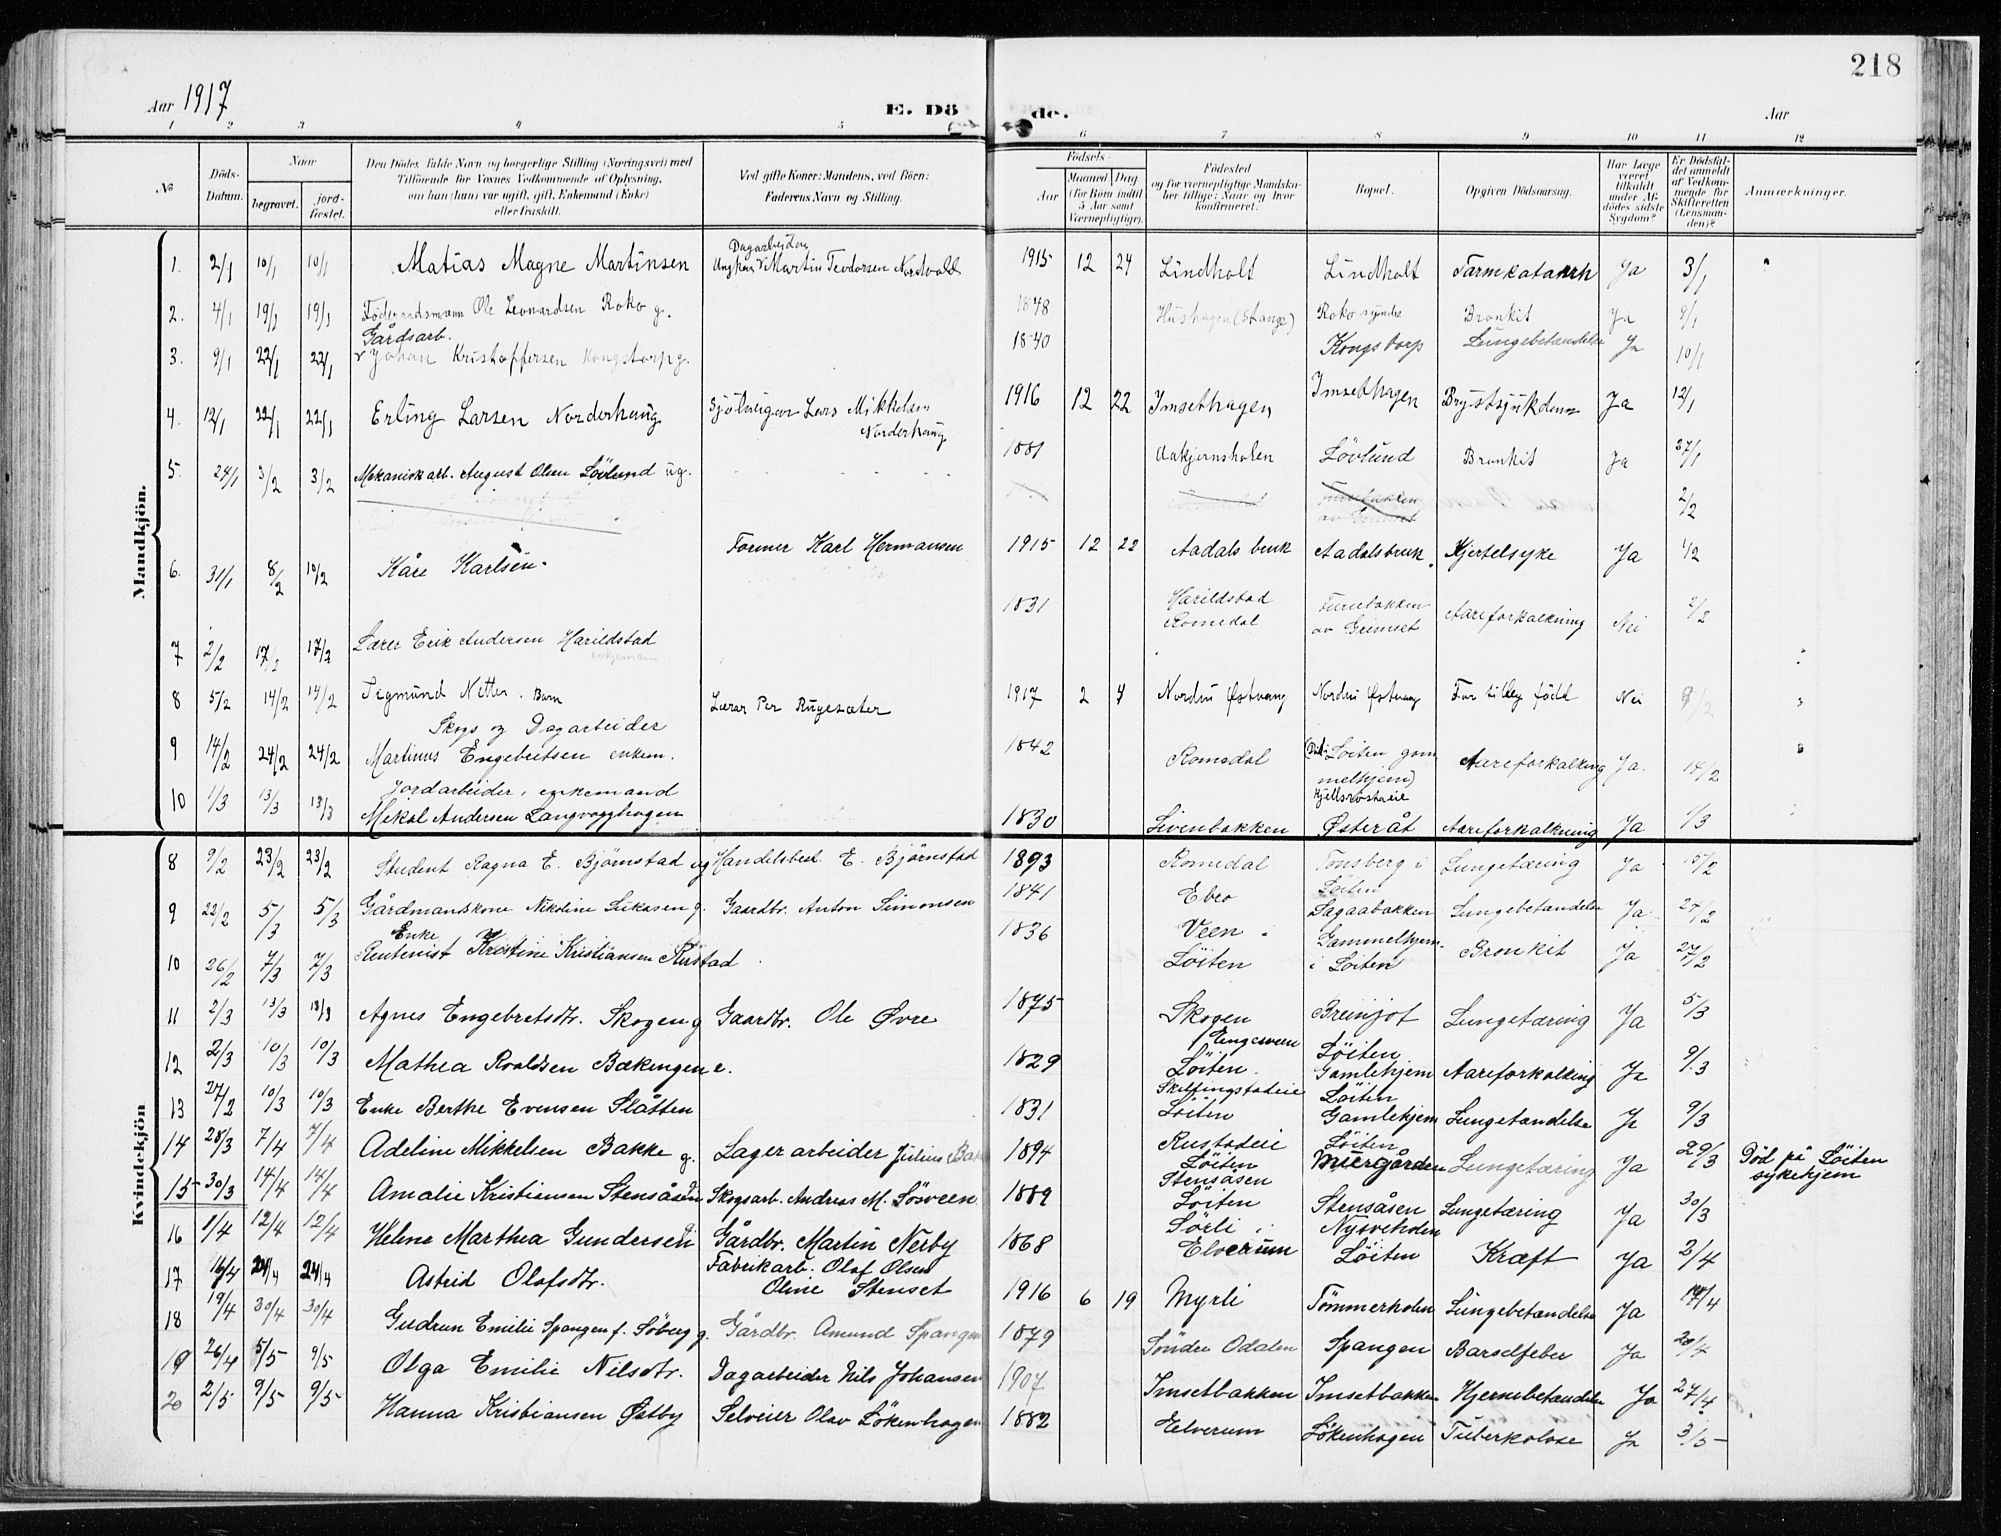 218
Aar 1917
E. Dö de.
Aar
1 2 3 4 5 6 7 8 9 10 11 12
No
Döds-Datum.
Naar
begravet.
jord-fæstet.
Den Dödes fulde Navn og borgerlige Stilling (Næringsvei) med
Tilföiende for Voxnes Vedkommende af Oplysning,
om han (hun) var ugift, gift, Enkemand (Enke)
eller fraskilt.
Ved gifte Koner: Mandens, ved Börn:
Faderens Navn og Stilling.
Födsels-
Aar
Maaned Dag
(for Börn indtil
5 Aar samt
Værnepligtige).
Födested
og for værnepligtige Mandska-
ber tillige: Naar og hvor
konfirmeret.
Bopæl.
Opgiven Dödsaarsag.
Har Læge
været
tilkaldt
under Af-
dödes sidste
Sygdom?
Er Dödsfal-
det anmeldt
af Vedkom-
mende for
Skifteretten
(Lensman-
den)?
Anmærkninger.
Mandkjön.
1. 2/1 10/1 10/1 Matias Magne Martinsen Dagarbeider Ungkar Martin Teodorsen Nordvold 1915 12 24 Lindholt Lindholt Tarmkatarrh Ja 3/1
2. 4/1 19/1 19/1 Föderaadsmann Ole Leonardsen Roko g. 1848 Hushagen (Stange) Roko syndre Bronkit Ja 9/1
3. 9/1 22/1 22/1 Gårdsarb. Johan Kristoffersen Kongstorp g. 1840 Kongstorp Lungebetendelse Ja 10/1
4. 12/1 22/1 22/1 Erling Larsen Norderhaug Sjöleigar Lars Mikkelsen Norderhaug 1916 12 22 Imsethagen Imsethagen Brystsjukdom Ja 12/1
5. 24/1 3/2 3/2 Mekanisk arb. August Olsen Lövlund ug. 1881 Aakjernsholen Lövlund Bronkit Ja 27/1
Furuebakken av Grimset 2/2
6. 31/1 8/2 10/2 Kåre Karlsen. Former Karl Hermansen 1915 12 22 Aadals bruk Aadalsbruk. Hjertesyke Ja 1/2
7 2/2 17/2 17/2 Lærer Erik Andersen Harildstad enkemann 1831 Harildstad Romedal Furuebakken av Grimset Aareforkalkning Nei 2/2
8 5/2 14/2 14/2 Sigmund Nitter. Barn Lærar Per Rugesæter 1917 2 4 Nordru Østvang Nordru Østvang For tilleg född Nei 9/2
9 14/2 24/2 24/2 Skogs og Dagarbeider Martinus Engebretsen enkem. 1842 Romedal Löiten gam melhjem) Kjellsröstaeie Aareforkalking Ja. 14/2
10 1/3 13/3 13/3 Jordarbeider, enkemand Mikal Andersen Langvagghagen 1830 Sivenbakken Østeråt Aareforkalkning Ja 1/3
Kvindekjön
8 9/2 23/2 23/2 Student Ragna E. Björnstad ug Handelsbest. E. Björnstad 1893 Romedal Tonsberg i Löiten Lungetæring Ja 15/2
9 22/2 5/3 5/3 Gårdmanskone Nikoline Lukasen g. Gaardbr. Anton Simonsen 1841 Ebro Sagaabakken Lungebetendelse Ja. 27/2
10 26/2 7/3 7/3 Enke Rentenist Kristine Kristiansen Rustad 1836 Veen i Löiten Gammelhjem. i Löiten Bronkit Ja 27/2
11 2/3 13/3 13/3 Agnes Engebretsdtr. Skogen g Gaardbr. Ole Øvre 1875 Skogen Breinjot Lungetæring Ja 5/3
12 2/3 10/3 10/3 Mathea Roaldsen Bækengen e. 1829 Engeveen Löiten. Löiten Gamlehjem Aareforkalking Ja 9/3
13 27/2 10/3 10/3 Enke Berthe Evensen Slåtten 1831 Skillingstadeie Löiten Löiten Gamlehjem Lungetændelse Ja 9/3
14 28/3 7/4 7/4 Adeline Mikkelsen Bakke g. Lager arbeider Julius Bak 1894 Rustadeie Löiten Löiten Muergården Lungetæring Ja 29/3 Död på Löiten sykehjem
15 30/3 14/4 14/4 Amalie Kristiansen Stensåsen Skogsarb. Andreas M. Sösveen 1889 Stensåsen Löiten Stensåsen Lungetæring Ja 30/3
16 1/4 12/4 12/4 Helene Marthea Gundersen g. Gårdbr. Martin Nerby 1868 Sörli i Elverum Nysveholen Löiten Kræft Ja 2/4
17 16/4 24/4 24/4 Astrid Olofsdtr. Fabrikarb. Olof Olsen Oline Stenset 1916 6 19 Myrli Tömmerholen Lungebetændelse Ja 17/4
18 19/4 30/4 30/4 Gudrun Emilie Spangen f. Söberg g. Gårdbr. Amund Spangen 1879 Söndre Odden Spangen Barselfeber Ja 20/4
19 26/4 5/5 9/5 Olga Emilie Nilsdtr. Dagarbeider Nils Johansen 1907 Imsetbakken Imsetbakken Hjernebetændelse Ja 27/4
20 2/5 9/5 9/5 Hanna Kristiansen Østby Selveier Olav Lökenhagen 1882 Elverum Lökenhagen Tuberkolose Ja 3/5